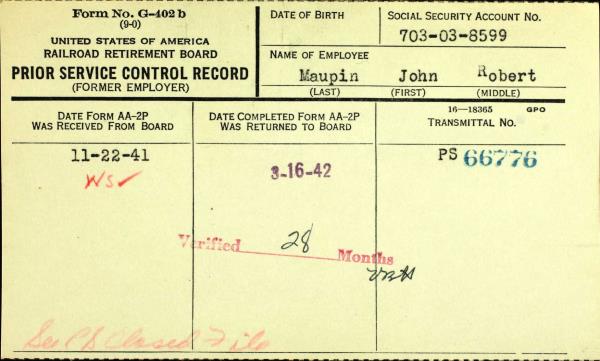 Form No. G-402 b
(9-0)
UNITED STATES OF AMERICA
RAILROAD RETIREMENT BOARD
PRIOR SERVICE CONTROL RECORD
(FORMER EMPLOYER)
DATE OF BIRTH
SOCIAL SECURITY ACCOUNT NO.
703-03-8599
NAME OF EMPLOYEE
Maupin John Robert
(LAST) (FIRST) (MIDDLE)
DATE FORM AA-2P
WAS RECEIVED FROM BOARD
DATE COMPLETED FORM AA-2P
WAS RETURNED TO BOARD
16—18365 GPO
TRANSMITTAL NO.
11-22-41
WS✓
3-16-42
PS 66776
Verified 28 Months
See Closed File